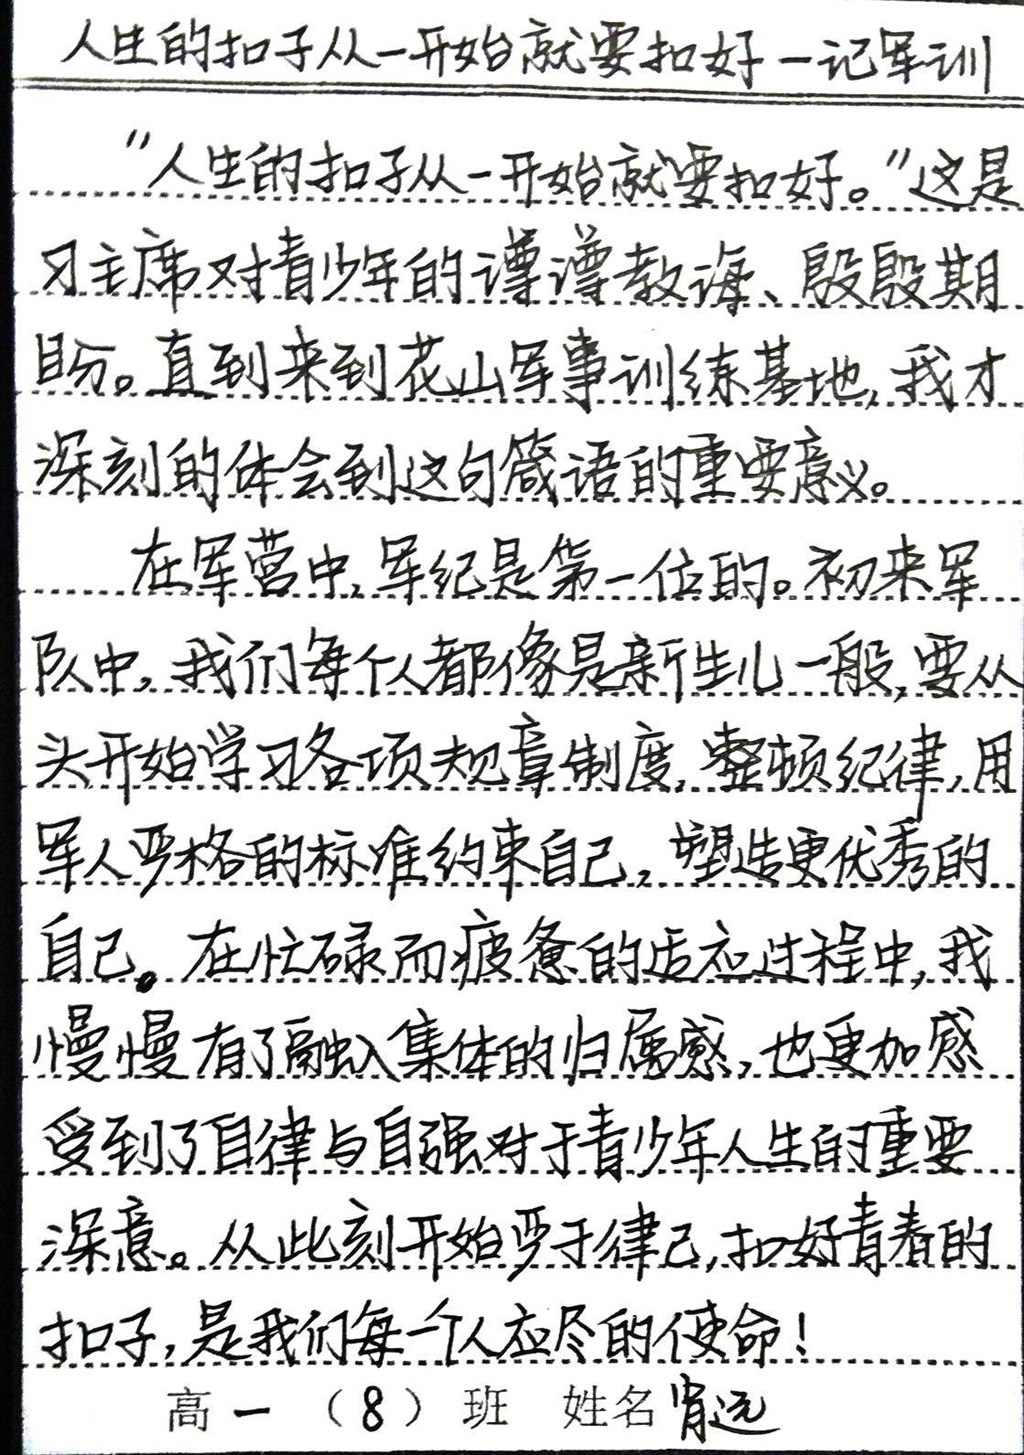 人生的扣子从一开始就要扣好—记军训
"人生的扣子从一开始就要扣好。"这是
习主席对青少年的谆谆教诲、殷殷期
盼。直到来到花山军事训练基地,我才
深刻的体会到这句箴语的重要意义。
在军营中,军纪是第一位的。初来军
队中,我们每个人都像是新生儿一般,要从
头开始学习各项规章制度,整顿纪律,用
军人严格的标准约束自己,塑造更优秀的
自己。在忙碌而疲惫的适应过程中,我
慢慢有了融入集体的归属感,也更加感
受到了自律与自强对于青少年人生的重要
深意。从此刻开始严于律己,扣好青春的
扣子,是我们每一个人应尽的使命!
高一(8)班 姓名肖远